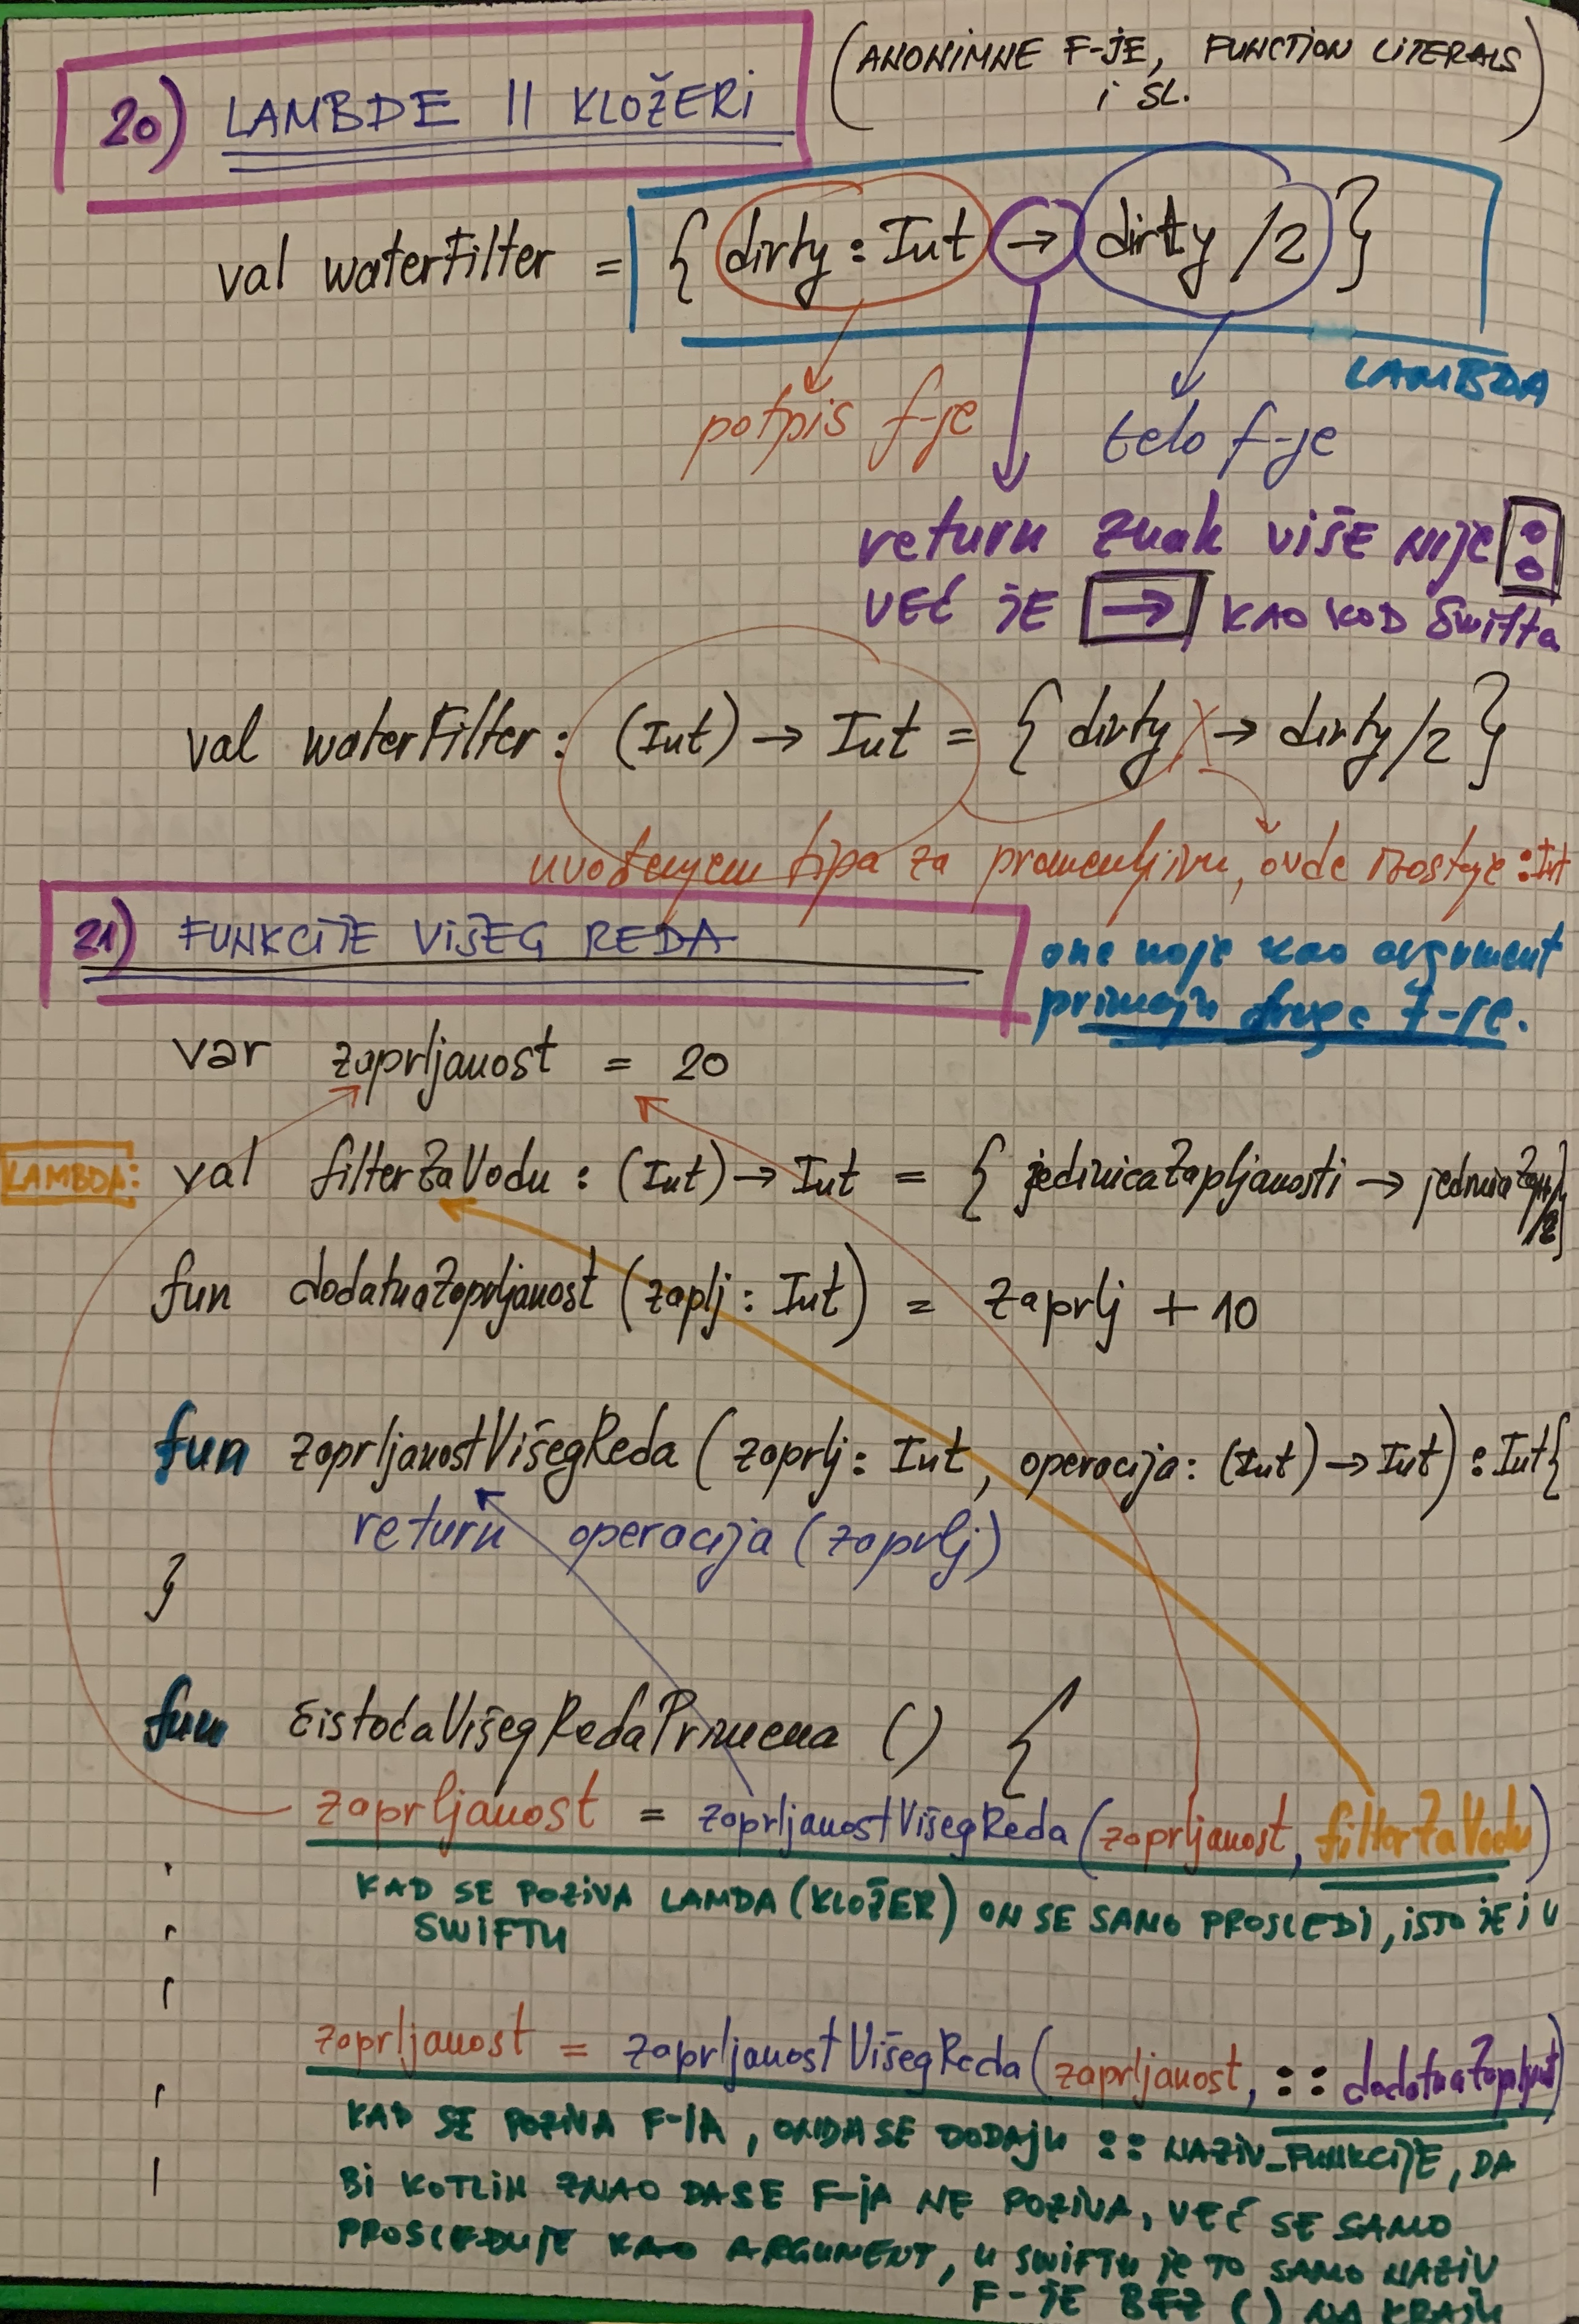 20) LAMBDE || KLOŽERI
(ANONIMNE F-JE, FUNCTION LITERALS
i SL.)
val waterFilter = { dirty : Int → dirty /2 }
LAMBDA
potpis f-je
telo f-je
return znak više nije :
VEĆ JE → KAO KOD Swifta
val waterFilter : (Int) → Int = { dirty → dirty/2 }
uvođenjem tipa za promenljivu, ovde izostaje :Int
21) FUNKCIJE VIŠEG REDA
one koje kao argument
primaju druge f-je.
var zaprljanost = 20
LAMBDA: val filterZaVodu : (Int) → Int = { jedinicaZapljanosti →
fun dodatnaZaprljanost (zaplj : Int) = zaprlj + 10
fun zaprljanostVišegReda ( zaprlj : Int, operacija : (Int) → Int) : Int {
return operacija (zaprlj)
}
fun čistoćaVišegRedaPrimena () {
zaprljanost = zaprljanostVišegReda (zaprljanost, filterZaVodu)
KAD SE POZIVA LAMDA (KLOŽER) ON SE SAMO PROSLEDI, iSTO JE i U
SWIFTU
zaprljanost = zaprljanostVišegReda (zaprljanost, :: dodatnaZaprljnost)
KAD SE POZIVA F-JA, ONDA SE DODAJU :: NAZIV_FUNKCIJE, DA
BI KOTLIN ZNAO DA SE F-JA NE POZIVA, VEĆ SE SAMO
PROSLEĐUJE KAO ARGUMENT, U SWIFTU JE TO SAMO NAZIV
F-JE BEZ () NA KRAJU